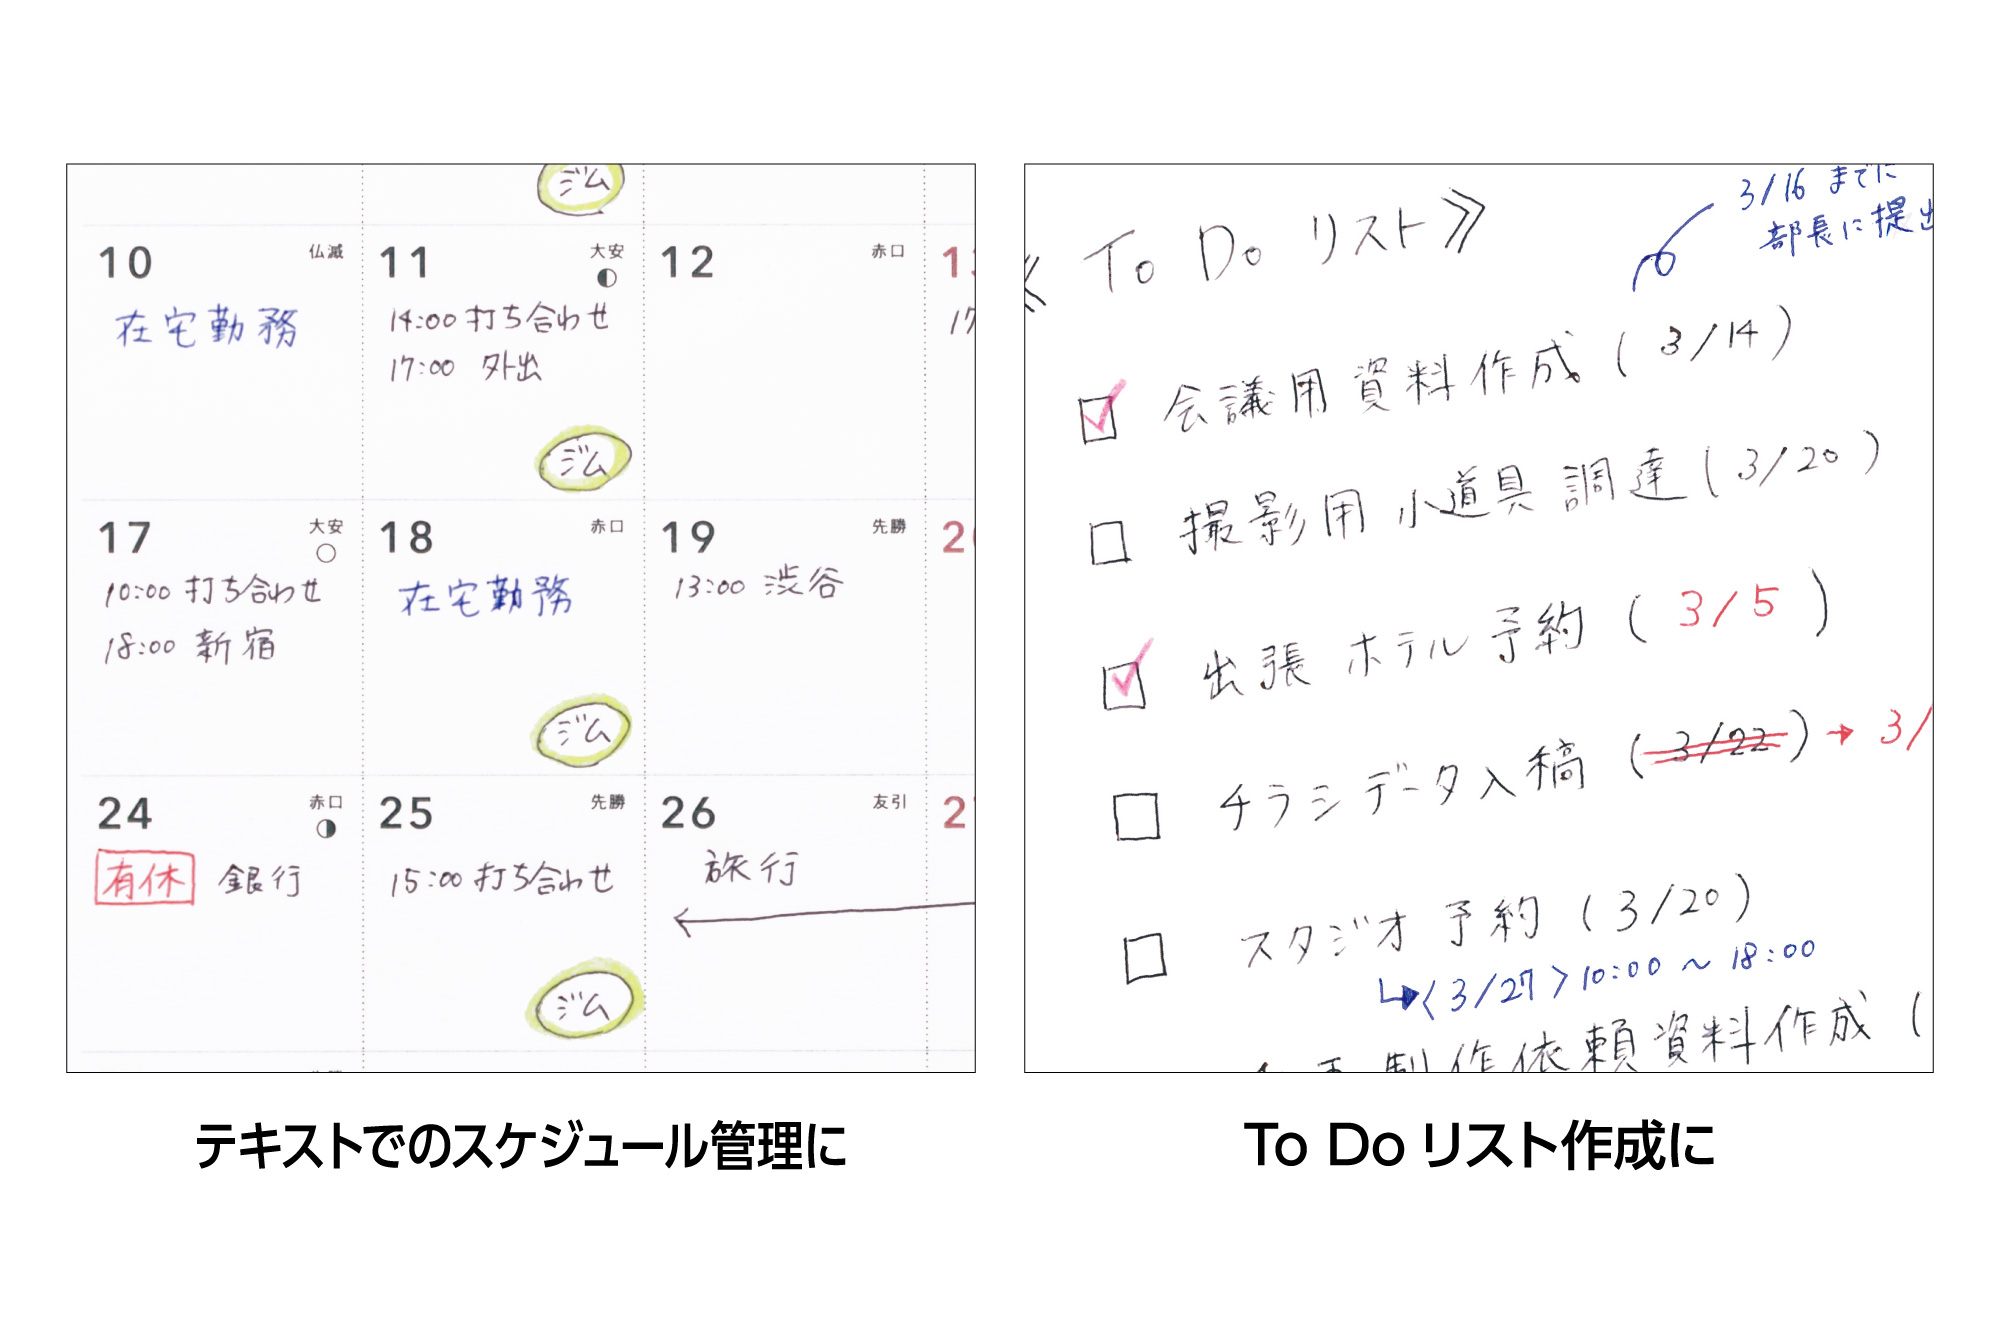 ジム
10 仏滅
在宅勤務
11 大安
14:00 打ち合わせ
17:00 外出
ジム
12 赤口
17 大安
10:00 打ち合わせ
18:00 新宿
18 赤口
在宅勤務
ジム
19 先勝
13:00 渋谷
24 赤口
有休 銀行
25 先勝
15:00 打ち合わせ
ジム
26 友引
旅行
テキストでのスケジュール管理に
3/16 までに
部長に提出
《 To Do リスト》
会議用資料作成 (3/14)
撮影用小道具調達 (3/20)
出張ホテル予約 (3/5)
チラシデータ入稿 (3/22) → 3/
スタジオ予約 (3/20)
〈3/27〉10:00 〜 18:00
制作依頼資料作成 (
To Do リスト作成に